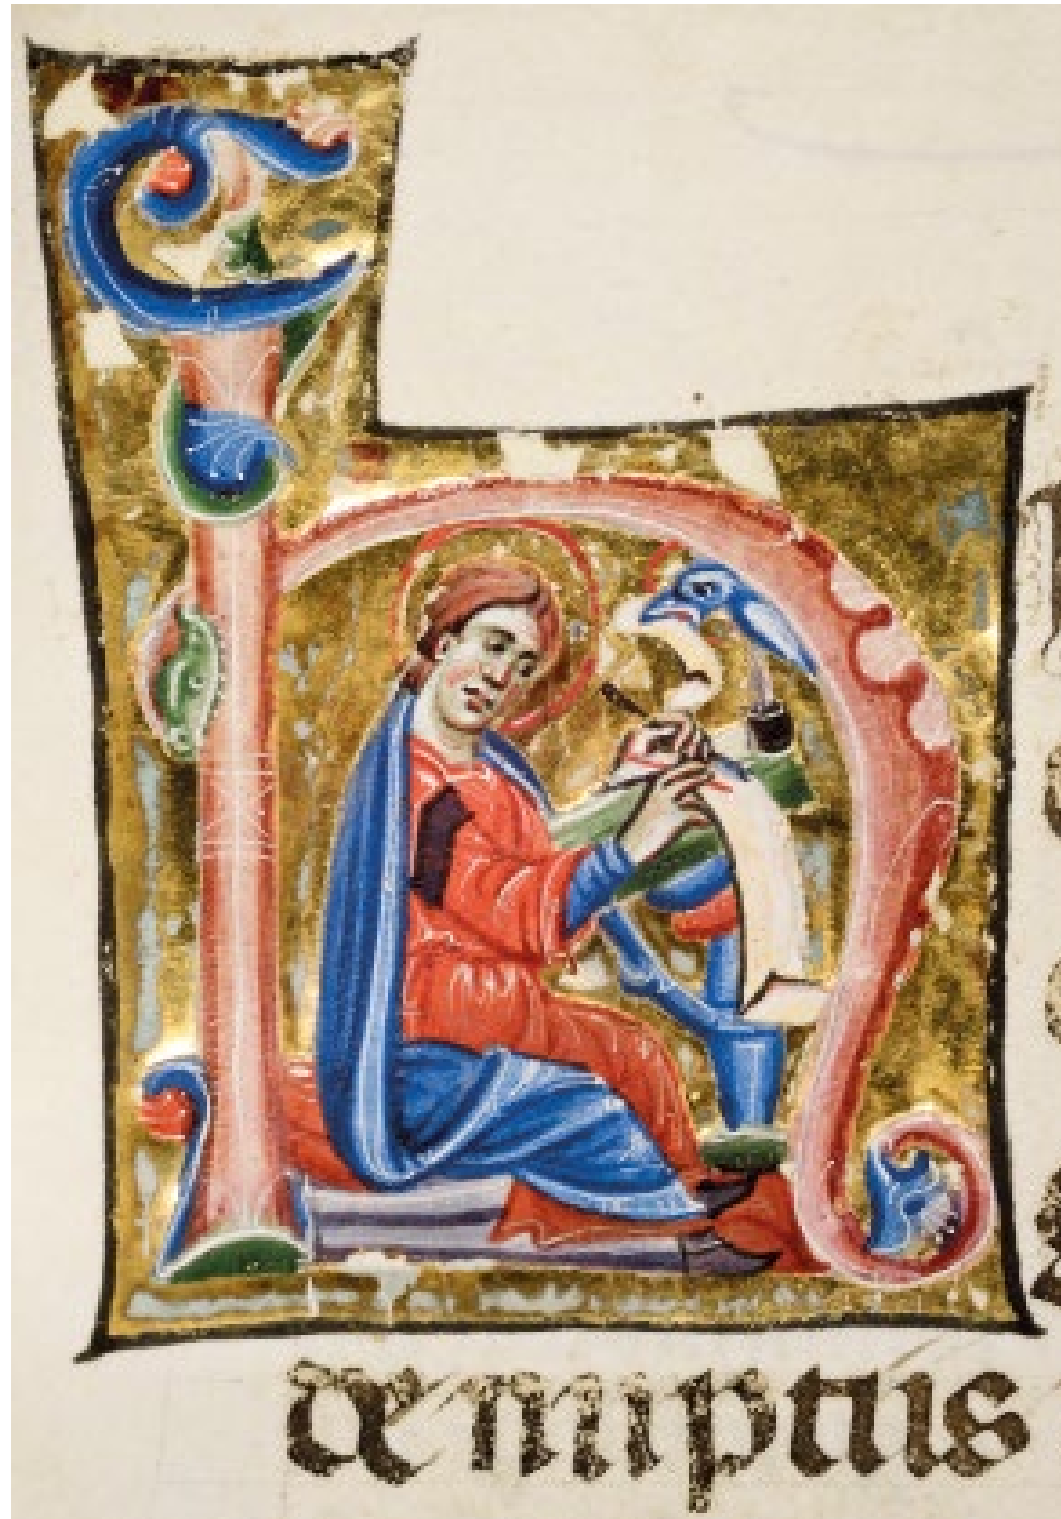 h
de nuptiis